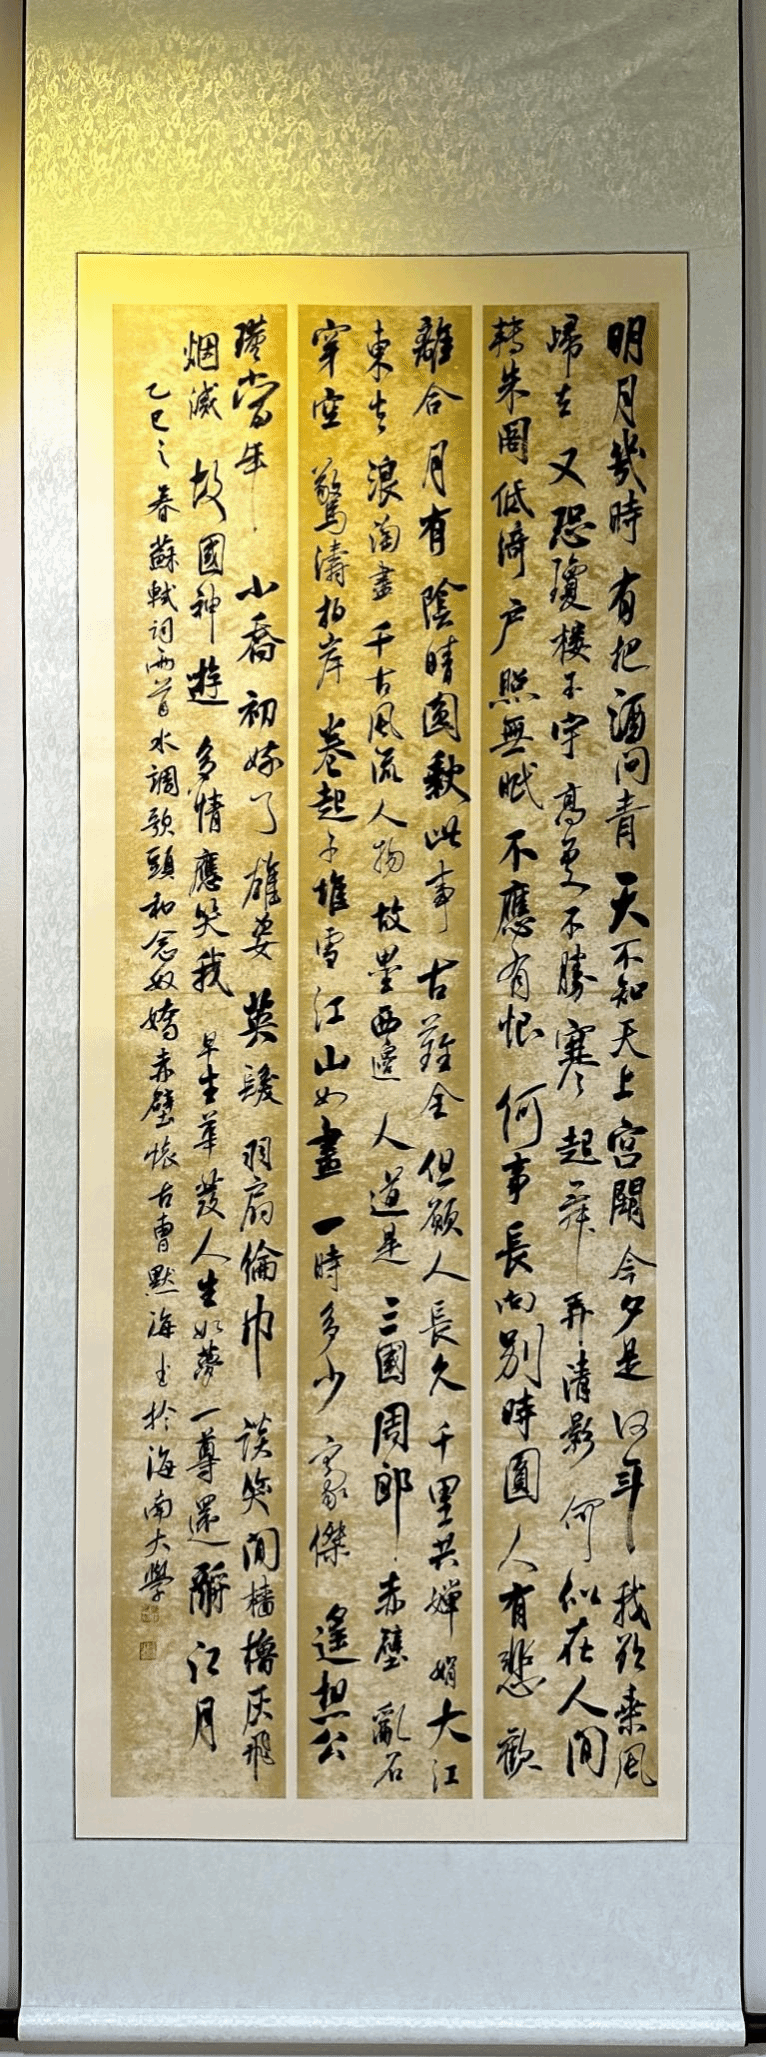 明月幾時有把酒問青天不知天上宮闕今夕是何年我欲乘風
歸去又恐瓊樓玉宇高處不勝寒起舞弄清影何似在人間
轉朱閣低綺户照無眠不應有恨何事長向別時圓人有悲歡
離合月有陰晴圓缺此事古難全但願人長久千里共嬋娟大江
東去浪淘盡千古風流人物故壘西邊人道是三國周郎赤壁亂石
穿空驚濤拍岸卷起千堆雪江山如畫一時多少豪傑遙想公
瑾當年小喬初嫁了雄姿英發羽扇綸巾談笑間檣櫓灰飛
烟滅故國神遊多情應笑我早生華發人生如夢一尊還酹江月
乙巳之春蘇軾詞兩首水調歌頭和念奴嬌赤壁懷古曹默海書於海南大學